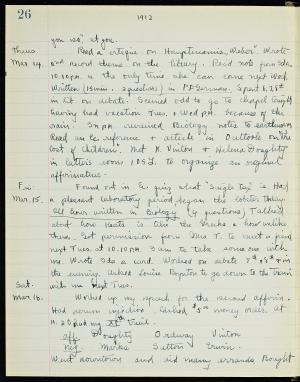 26
1912
you us" at you.
Thurs. Read a critique on Hauptmann's "Weber". Wrote
Mar. 14. 2nd record theme on the library. Rec'd note from Ida
10.10 P.M. is the only time she can come next Wed.
Written (15 min. questions) in P.P. German. Spent
in lit on debate. Seemed odd to go to chapel tonight
having had vacation Tues. & Wed P.M. because of the
rain. 2nd P.M. reviewed Biology notes to earthworm
Read in Ec reference & article in Outlook on the
Cost of children. Met M. Vinton & Helena Doughty
in latter's room to organize as regular
affirmative.
Fri. Found out in Ec quiz what "Single Tax" is. Had
Mar. 15. a pleasant laboratory period began the lobster today.
All hour written in Biology (4 questions) Talked
about how Keats is like the Greeks & how unlike
them. Got permission from Miss T. to meet a
next Tues. at 10.10 P.M. & am to take someone with
me. Wrote Ida a card. Worked on debate
the evening. Asked Louise Boynton to go down to the train
with me next Tues.
Sat. Worked up my speech for the second affirm.
Mar. 16. Had serum injection. Cashed $5.00 money order. At
had my trial.
Aff Doughty Ordway Vinton
Neg Marks Sutton Erwin
Went downtown and did many errands. Bought